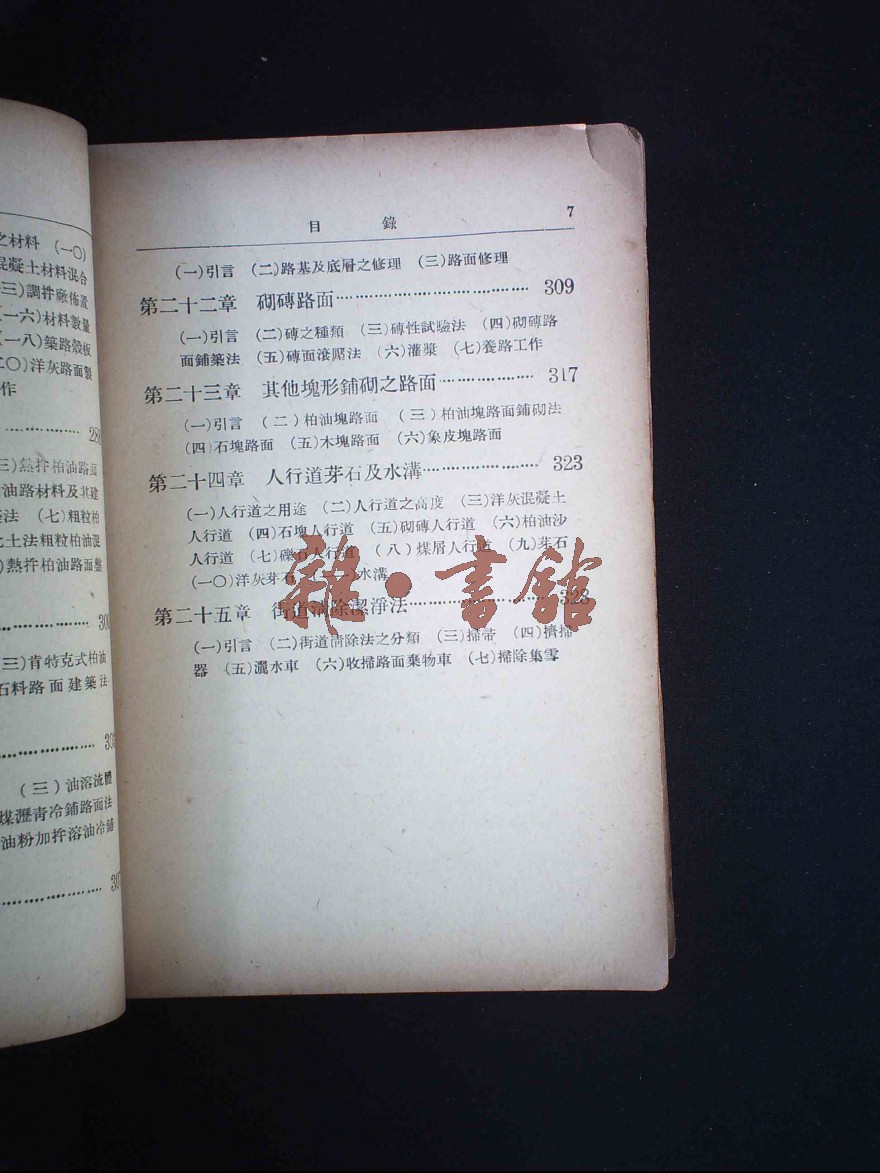 之材料 (一〇)
混凝土材料混合
三)調拌廠佈置
(一六)材料數量
(一八)築路殼板
二〇)洋灰路面製
作
三)熱拌柏油路面
油路材料及其建
法 (七)粗粒柏
土法粗粒柏油混
)熱拌柏油路面盤
三)肯特克式柏油
石料路面建築法
(三)油溶流體
煤瀝青冷鋪路面法
油粉加拌溶油冷鋪
目 錄 7
(一)引言 (二)路基及底層之修理 (三)路面修理
第二十二章 砌磚路面…………………………… 309
(一)引言 (二)磚之種類 (三)磚性試驗法 (四)砌磚路
面鋪築法 (五)磚面滾壓法 (六)灌漿 (七)養路工作
第二十三章 其他塊形鋪砌之路面……………… 317
(一)引言 (二)柏油塊路面 (三)柏油塊路面鋪砌法
(四)石塊路面 (五)木塊路面 (六)象皮塊路面
第二十四章 人行道芽石及水溝………………… 323
(一)人行道之用途 (二)人行道之高度 (三)洋灰混凝土
人行道 (四)石塊人行道 (五)砌磚人行道 (六)柏油沙
人行道 (七)礫石人行道 (八)煤屑人行道 (九)芽石
(一〇)洋灰芽石 (一一)水溝
第二十五章 街道清除潔淨法…………………… 328
(一)引言 (二)街道清除法之分類 (三)掃帚 (四)擠掃
器 (五)灑水車 (六)收掃路面棄物車 (七)掃除集雪
雜·書館